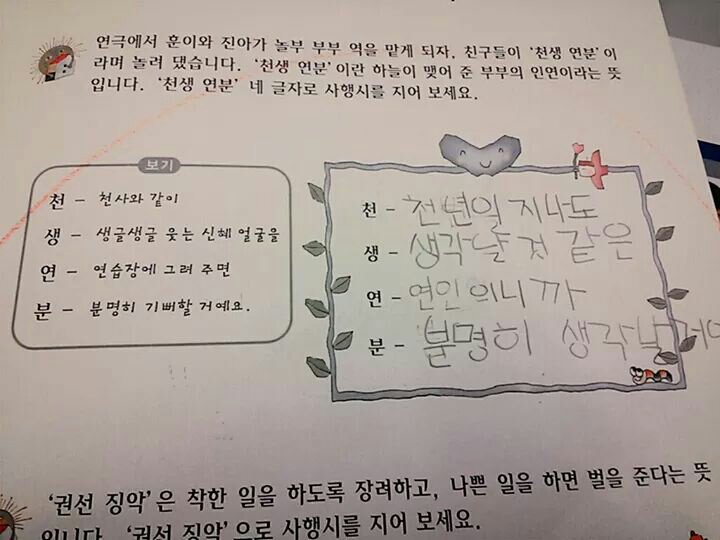 연극에서 훈이와 진아가 놀부 부부 역을 맡게 되자, 친구들이 '천생 연분'이
라며 놀려 댔습니다. '천생 연분'이란 하늘이 맺어 준 부부의 인연이라는 뜻
입니다. '천생 연분' 네 글자로 사행시를 지어 보세요.
보기
천 - 천사와 같이
생 - 생글생글 웃는 신혜 얼굴을
연 - 연습장에 그려 주면
분 - 분명히 기뻐할 거예요.
천 - 천년의 지나도
생 - 생각날 것 같은
연 - 연인의니까
분 - 불명히 생각날
'권선 징악'은 착한 일을 하도록 장려하고, 나쁜 일을 하면 벌을 준다는 뜻
입니다. '권선 징악'으로 사행시를 지어 보세요.